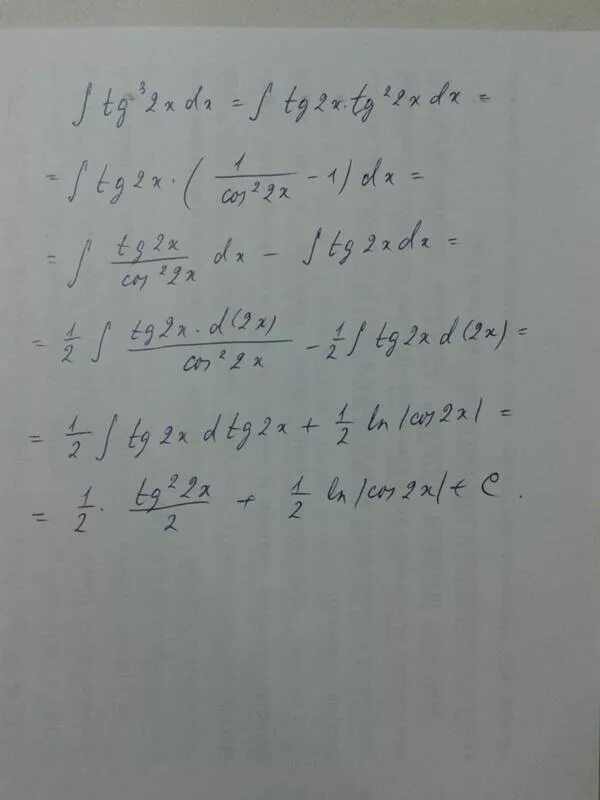 ∫ tg³2x dx = ∫ tg2x·tg²2x dx =
= ∫ tg2x·(1/cos²2x − 1) dx =
= ∫ tg2x/cos²2x dx − ∫ tg2x dx =
= 1/2 ∫ tg2x·d(2x)/cos²2x − 1/2 ∫ tg2x d(2x) =
= 1/2 ∫ tg2x d tg2x + 1/2 ln|cos2x| =
= 1/2 · tg²2x/2 + 1/2 ln|cos2x| + C.